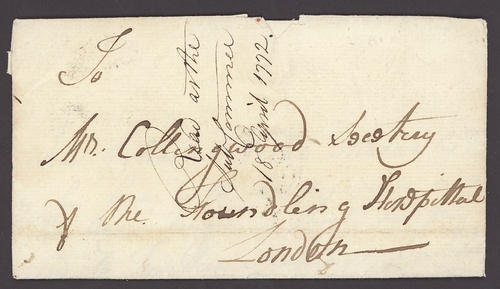 To
Mr. Collingwood Secetry
of the Foundling Hospital
London
Read at the
Sub Committee
18 April 1772.